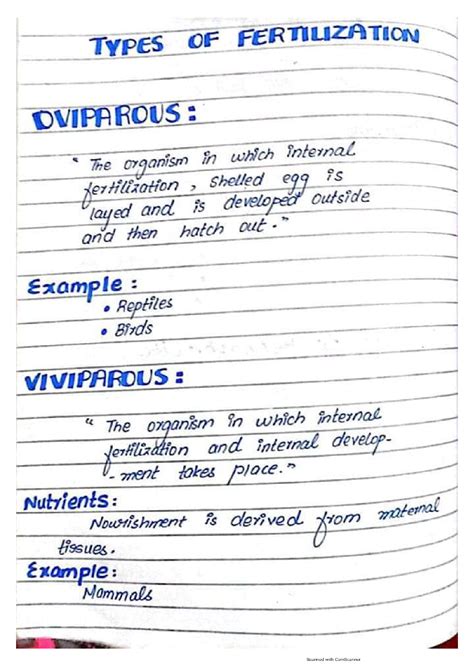 TYPES OF FERTILIZATION
OVIPAROUS :
" The organism in which internal
fertilization , Shelled egg is
layed and is developed outside
and then hatch out . "
Example :
• Reptiles
• Birds
VIVIPAROUS :
" The organism in which internal
fertilization and internal develop-
- ment takes place. "
Nutrients :
Nourishment is derived from maternal
tissues .
Example :
Mammals
Scanned with CamScanner